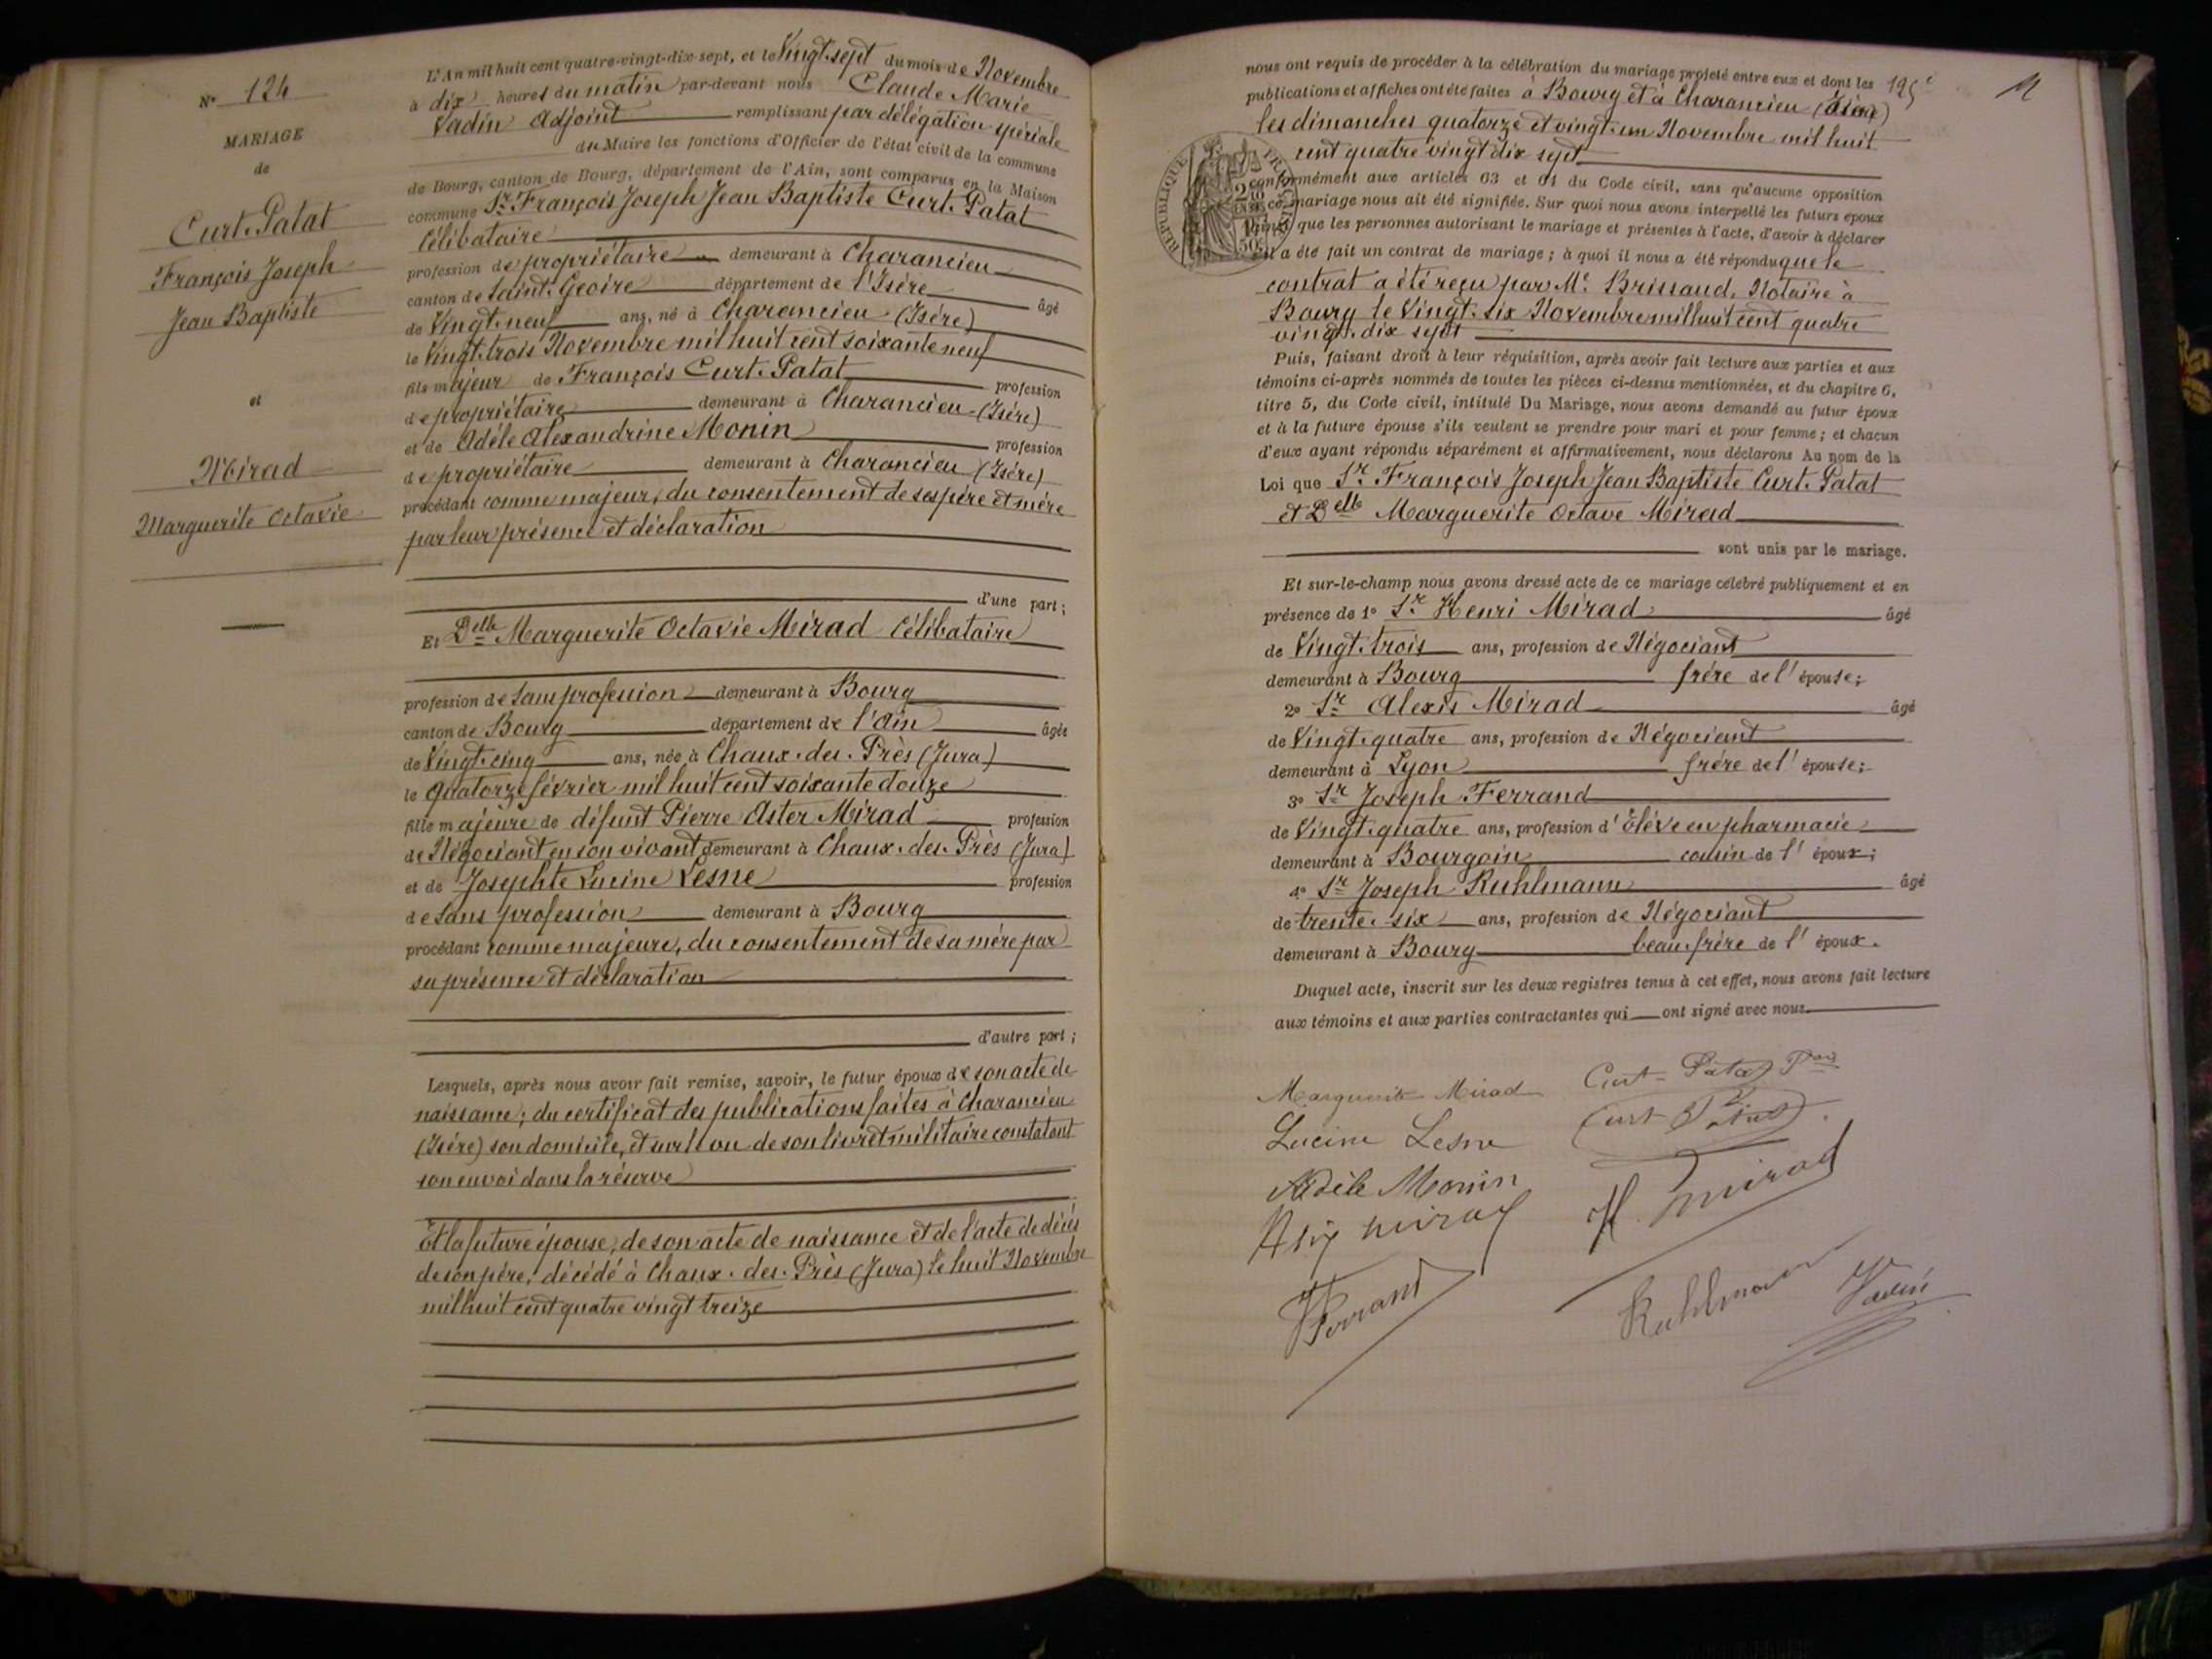 N° 124
MARIAGE
de
Curt-Patat
François Joseph
Jean Baptiste
et
Mirad
Marguerite Octavie
L'An mil huit cent quatre-vingt-dix-sept, et le Vingt-sept du mois de Novembre
à dix heures du matin par-devant nous Claude Marie
Vadin Adjoint remplissant par délégation spéciale
du Maire les fonctions d'Officier de l'état civil de la commune
de Bourg, canton de Bourg, département de l'Ain, sont comparus en la Maison
commune Sr François Joseph Jean Baptiste Curt-Patat
Célibataire
profession de propriétaire demeurant à Charancieu
canton de Saint-Geoire département de l'Isère âgé
de Vingt-neuf ans, né à Charancieu (Isère)
le Vingt-trois Novembre mil huit cent soixante neuf
fils majeur de François Curt-Patat profession
de propriétaire demeurant à Charancieu (Isère)
et de Adèle Alexandrine Monin profession
de propriétaire demeurant à Charancieu (Isère)
procédant comme majeur, du consentement de ses père et mère
par leur présence et déclaration
d'une part;
Et Delle Marguerite Octavie Mirad Célibataire
profession de Sans profession demeurant à Bourg
canton de Bourg département de l'Ain âgée
de Vingt-cinq ans, née à Chaux-des-Près (Jura)
le quatorze février mil huit cent soixante douze
fille majeure de défunt Pierre Aster Mirad profession
de Négociant en son vivant demeurant à Chaux-des-Près (Jura)
et de Josephte Lucine Lesne profession
de Sans profession demeurant à Bourg
procédant comme majeure, du consentement de sa mère par
sa présence et déclaration
d'autre part;
Lesquels, après nous avoir fait remise, savoir, le futur époux de son acte de
naissance; du certificat des publications faites à Charancieu
(Isère) son domicile, et sur le vu de son livret militaire constatant
son envoi dans la réserve
Et la future épouse, de son acte de naissance et de l'acte de décès
de son père, décédé à Chaux-des-Près (Jura) le huit Novembre
mil huit cent quatre vingt treize
nous ont requis de procéder à la célébration du mariage projeté entre eux et dont les
publications et affiches ont été faites à Bourg et à Charancieu (Isère)
les dimanches quatorze et vingt-un Novembre mil huit
cent quatre vingt dix sept
conformément aux articles 63 et 64 du Code civil, sans qu'aucune opposition
à ce mariage nous ait été signifiée. Sur quoi nous avons interpellé les futurs époux
ainsi que les personnes autorisant le mariage et présentes à l'acte, d'avoir à déclarer
s'il a été fait un contrat de mariage; à quoi il nous a été répondu que le
contrat a été reçu par Me Brissaud, Notaire à
Bourg le Vingt-six Novembre mil huit cent quatre
vingt-dix sept
Puis, faisant droit à leur réquisition, après avoir fait lecture aux parties et aux
témoins ci-après nommés de toutes les pièces ci-dessus mentionnées, et du chapitre 6,
titre 5, du Code civil, intitulé Du Mariage, nous avons demandé au futur époux
et à la future épouse s'ils veulent se prendre pour mari et pour femme; et chacun
d'eux ayant répondu séparément et affirmativement, nous déclarons Au nom de la
Loi que Sr François Joseph Jean Baptiste Curt-Patat
et Delle Marguerite Octave Mirad
sont unis par le mariage.
Et sur-le-champ nous avons dressé acte de ce mariage célébré publiquement et en
présence de 1° Sr Henri Mirad âgé
de Vingt-trois ans, profession de Négociant
demeurant à Bourg frère de l'épouse;
2° Sr Alexis Mirad âgé
de Vingt-quatre ans, profession de Négociant
demeurant à Lyon frère de l'épouse;
3° Sr Joseph Ferrand
de Vingt-quatre ans, profession d'Elève en pharmacie
demeurant à Bourgoin cousin de l'époux;
4° Sr Joseph Ruhlmann âgé
de trente-six ans, profession de Négociant
demeurant à Bourg beau-frère de l'époux.
Duquel acte, inscrit sur les deux registres tenus à cet effet, nous avons fait lecture
aux témoins et aux parties contractantes qui ont signé avec nous.
Marguerite Mirad Curt-Patat
Lucine Lesne Curt Patat
Adèle Monin
Mirad H. Mirad
Ferrand Ruhlmann Vadin